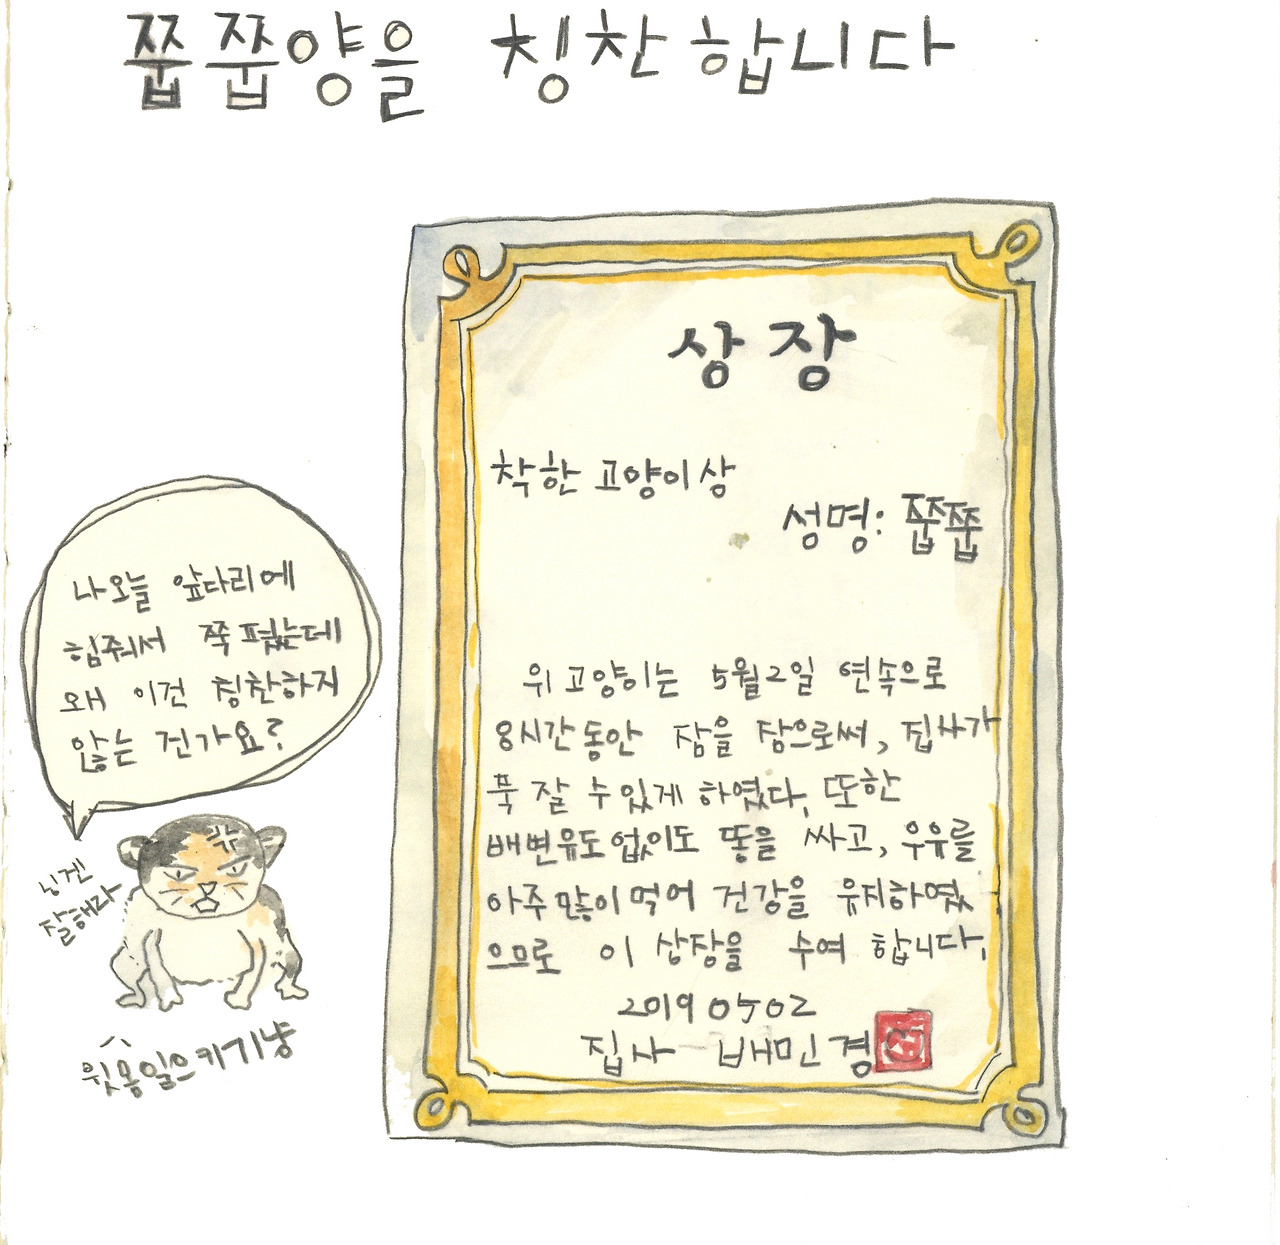 쭙쭙양을 칭찬합니다
상장
착한 고양이상
성명: 쭙쭙
위 고양이는 5월2일 연속으로
8시간동안 잠을 잠으로써, 집사가
푹 잘 수 있게 하였다, 또한
배변유도 없이도 똥을 싸고, 우유를
아주 많이 먹어 건강을 유지하였
으므로 이 상장을 수여 합니다.
2019 05 02
집사 배민경
나 오늘 앞다리에
힘줘서 쭉 폈는데
왜 이건 칭찬하지
않는 건가요?
닝겐
잘해라
윗몸일으키기냥